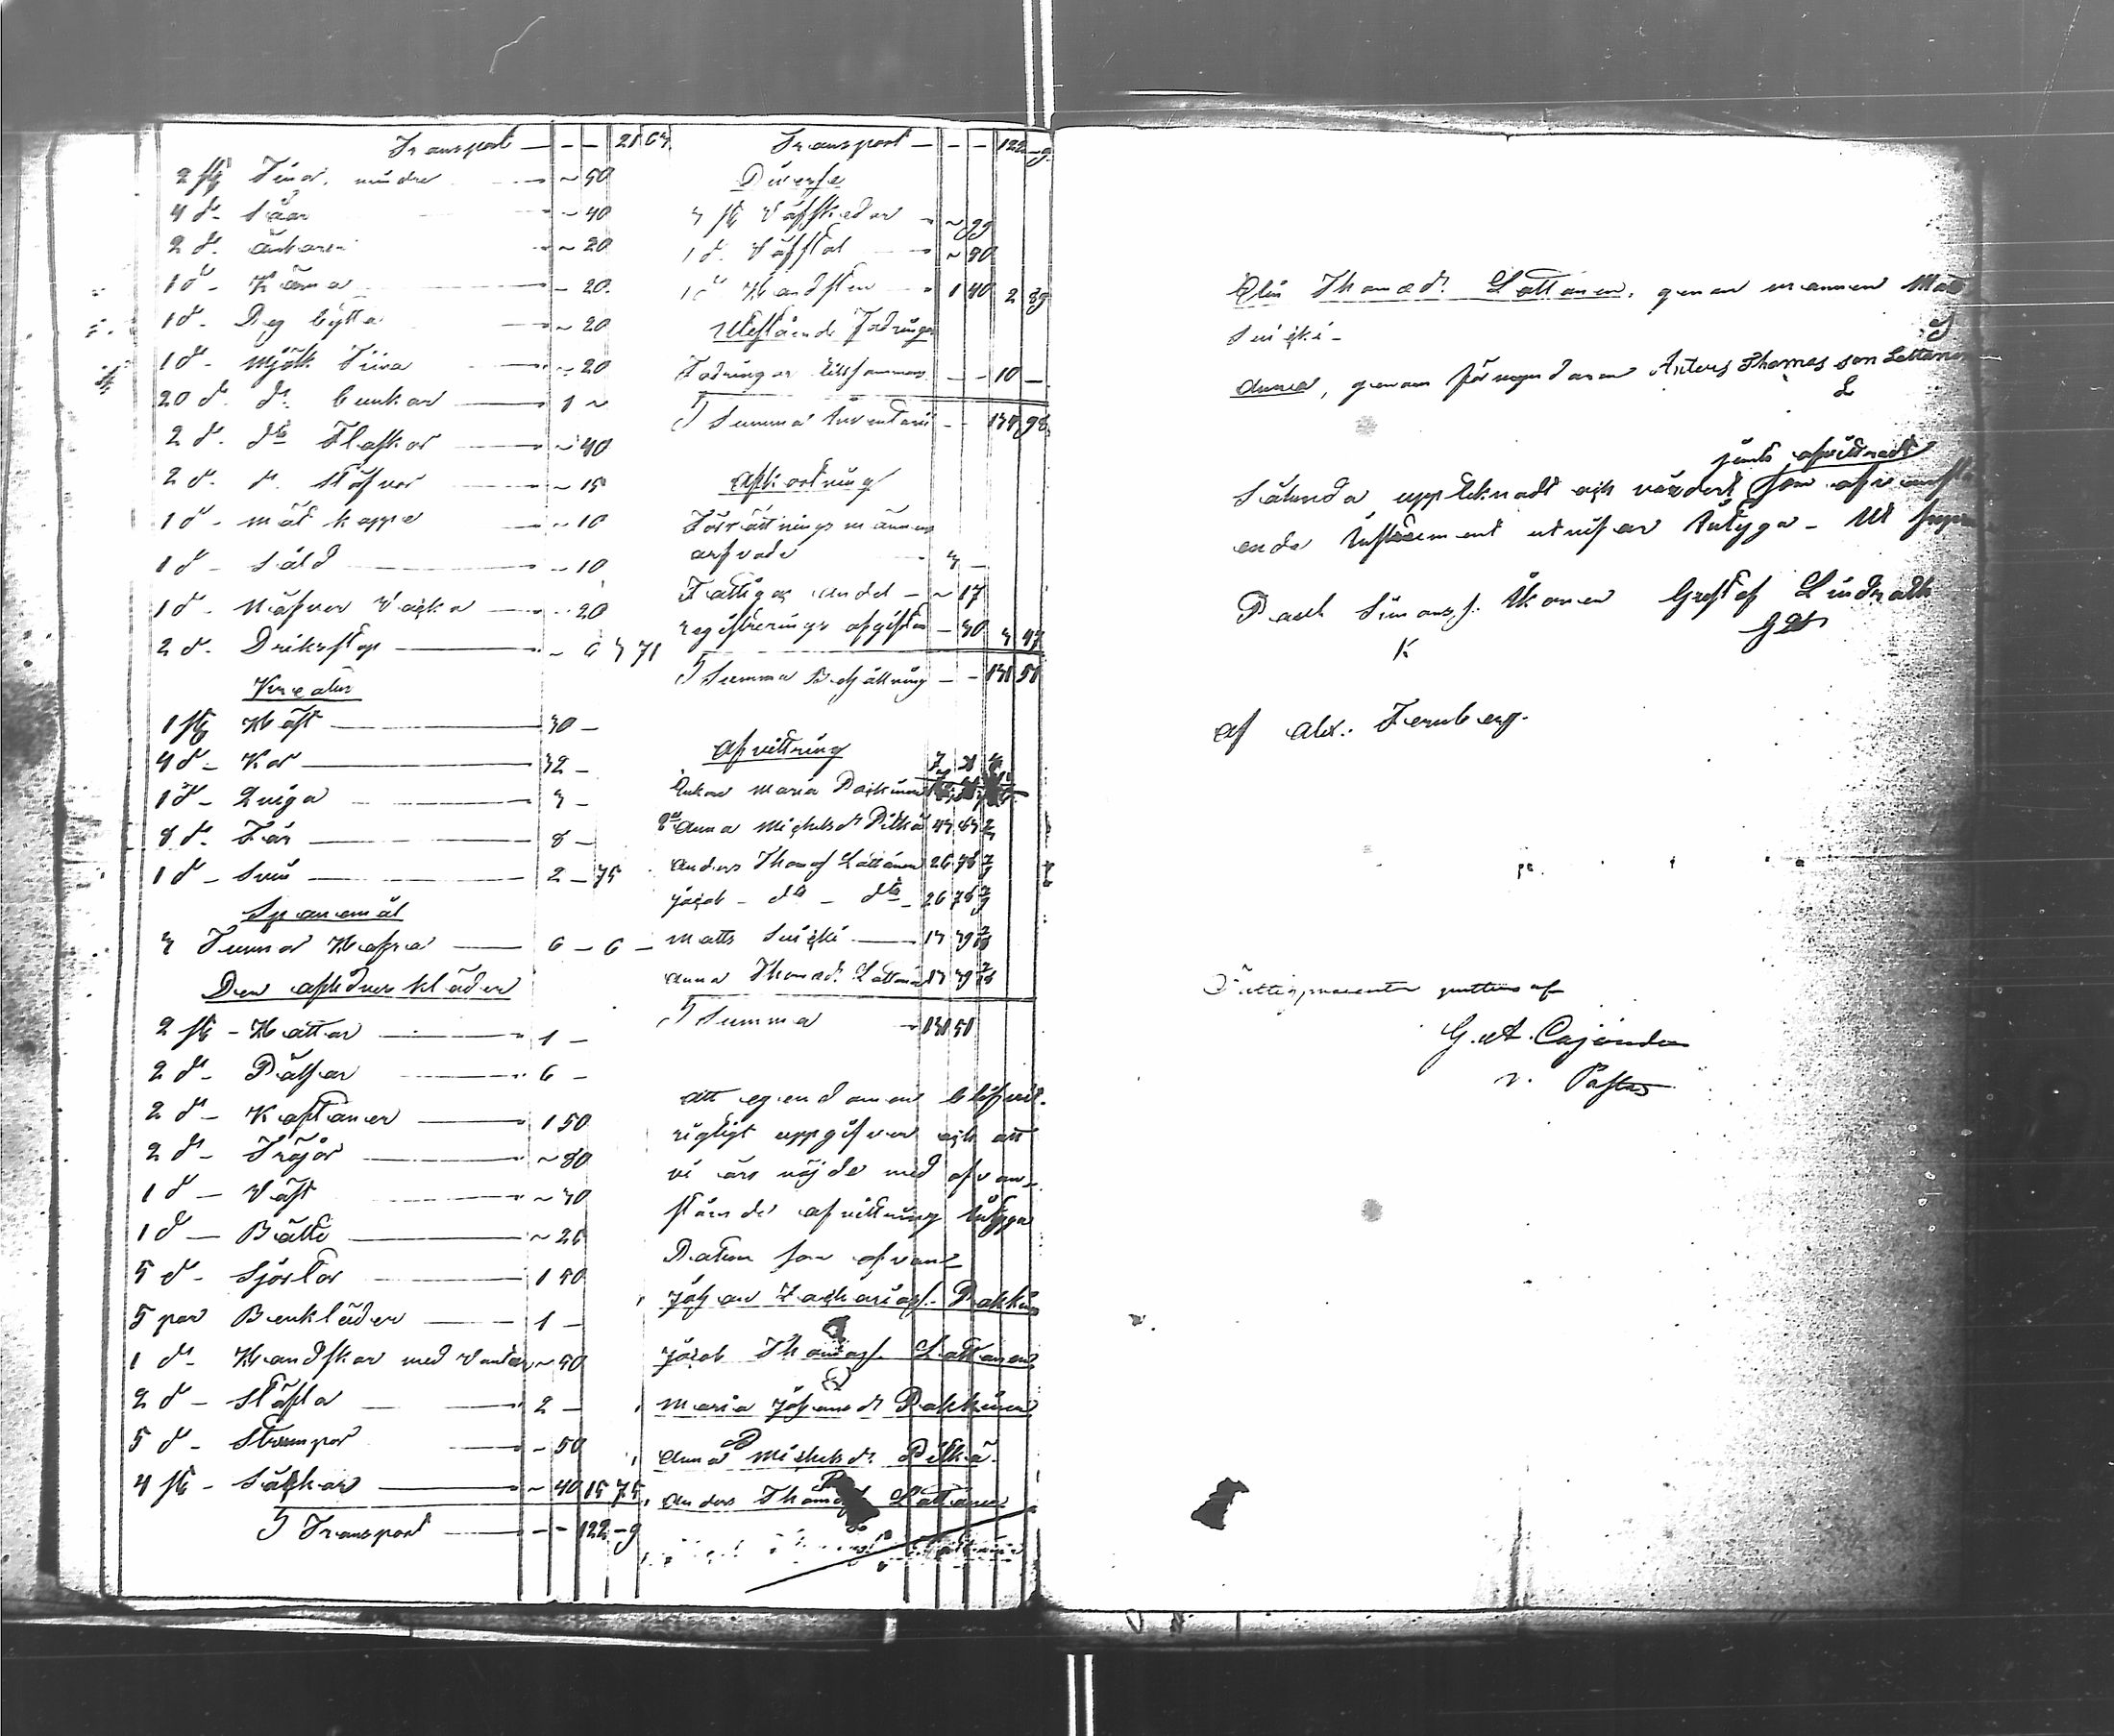 Transport — — — 21 67.
2 st Tinor, mindre — ~ 50
4 d:o Såar — ~ 40
2 d:o ankaren — ~ 20
1 d:o Kärna — ~ 20.
1 d:o Deg bytta — ~ 20
1 d:o Mjölk Tiina — ~ 20
20 d:o d:o bunkar — 1 ~
2 d:o d:o Flaskor — ~ 40
2 d:o d:o Stäfvor — ~ 15
1 d:o mål kappa — ~ 10
1 d:o Såld — ~ 10
1 d:o Näfver — ~ 20
2 d:o Drikstop — ~ 6 3 71
Kreatur
1 st Häst — 30 —
4 d:o Kor — 32 —
1 d:o Quiga — 3 —
8 d:o Får — 8 —
1 d:o Svin — 2 — 75
Spanemål
3 Tunnor Hafra — 6 — 6 —
Den aflidnes kläder
2 st Hattar — 1 —
2 d:o Pälsar — 6 —
2 d:o Kaftaner — 1 50
2 d:o Tröjor — ~ 80
1 d:o Väst — ~ 30
1 d:o Bälte — ~ 25
5 d:o Sjortor — 1 50
5 par Benkläder — 1 —
1 d:o Handskar med Vantar ~ 50
2 d:o Stöfla — 2 —
5 d:o Strumpor — ~ 50
4 st Säckar — ~ 40 15 75
Transport — — — 122 — 9
Transport — — — 122 — 9.
Diverse
3 st Väfskedar — ~ 99
1 d:o Väfstol — ~ 50
1 d:o Handsten — 1 40 2 89
Utestående Fodringar
Fodringar tillsammans — — 10 —
Summa Inventarii — — 134 98
Afkortning
Förrättnings männens
arfvode — 3 —
Fattiges andel — ~ 17
registrerings afgiften — 30 3 47
Summa Behållning — — 131 51
Afvittring
Enkan Maria Packinen
Anna Michelsdr Pitkä 43 83
Anders Thomas. Lattanen 26 78
Jacob — d:o — d:o — 26 78
Matts Suicki — 13 39
Anna Thomædr. Lattanen 13 39
Summa — 131 51
Att egendomen blifvit
rigtigt uppgifven och att
vi äro nöjde med ofvan-
stående afvittring intyga
Datum som ofvan
Johan Zachariass. Pakkinen
Jacob Thomass. Lattanen
Maria Johansdr Pakkinen
P
Anna Michelsdr. Pitkä
P
Anders Thomass. Lattanen
Elin Thomædr. Lattanen, genom mannen Matts
Suicki —
S
Anna, genom förmyndaren Anters Thomas son Lattanen
L
jemte afvittradt
Sålunda upptecknadt och värdert som ofvanstå
ende Instrument utvisar Intyga — Ut supra
Paul Simonss. Ikonen Gustaf Lindroth
K
af Alex. Fernberg.
Fattigprocenten qvitteras af
G. A. Cajander
v. Pastor